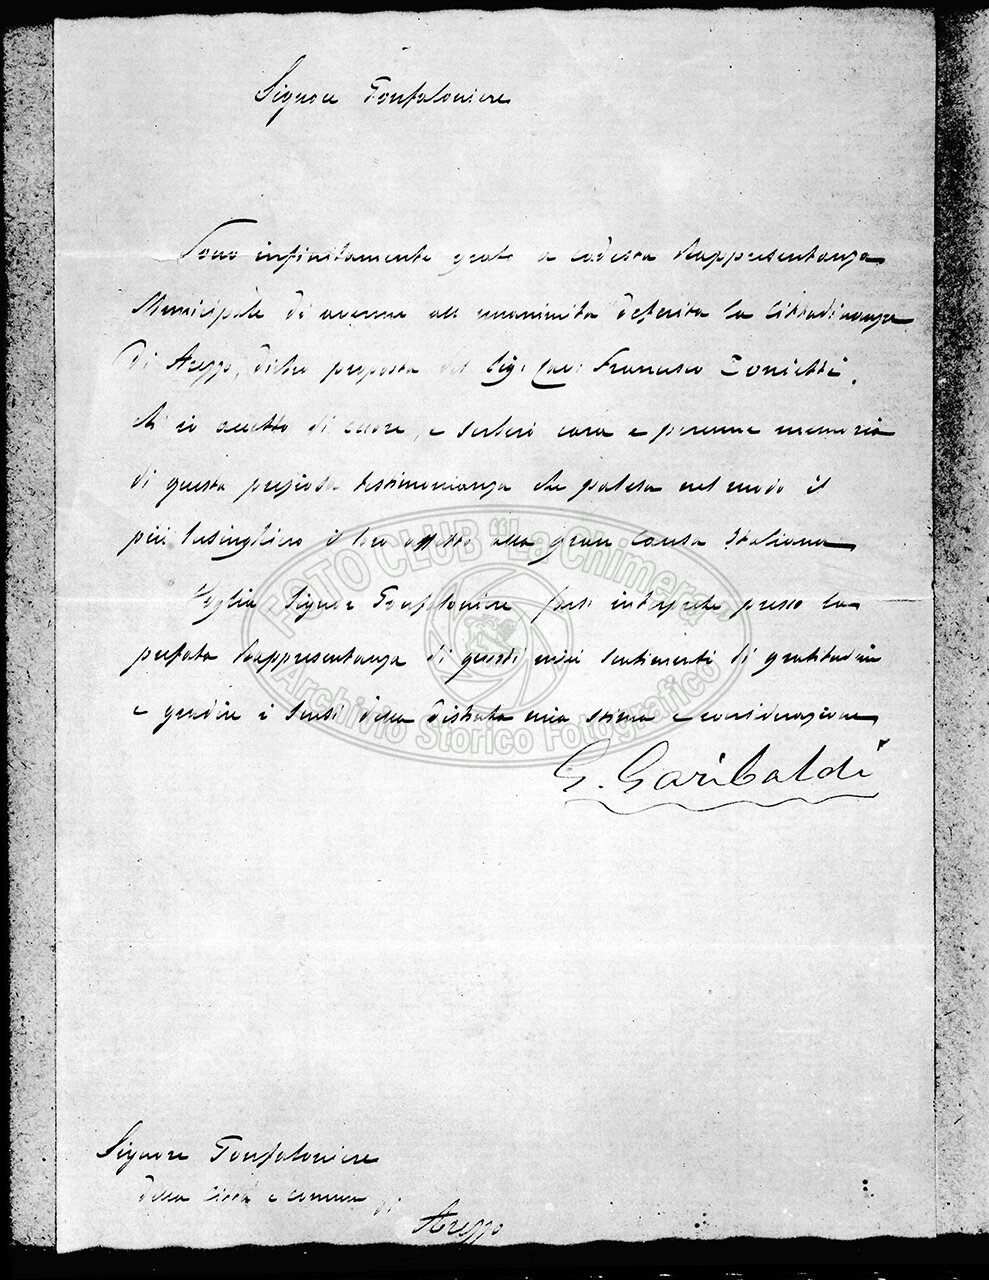 Signore Gonfaloniere
Sono infinitamente grato a codesta Rappresentanza
Municipale di avermi all unanimità deferita la Cittadinanza
di Arezzo, dietro proposta del Sig. Cav. Francesco
ch io accetto di cuore, e serberò cara e perenne memoria
di questa preziosa testimonianza che palesa nel modo il
più lusinghiero il loro affetto alla gran Causa Italiana
Voglia Signor Gonfaloniere farsi interprete presso la
prefata Rappresentanza di questi miei sentimenti di gratitudine
e gradire i sensi della distinta mia stima e considerazione
G. Garibaldi
FOTO CLUB "La Chimera"
Archivio Storico Fotografico
Signore Gonfaloniere
della Città e comune di
Arezzo